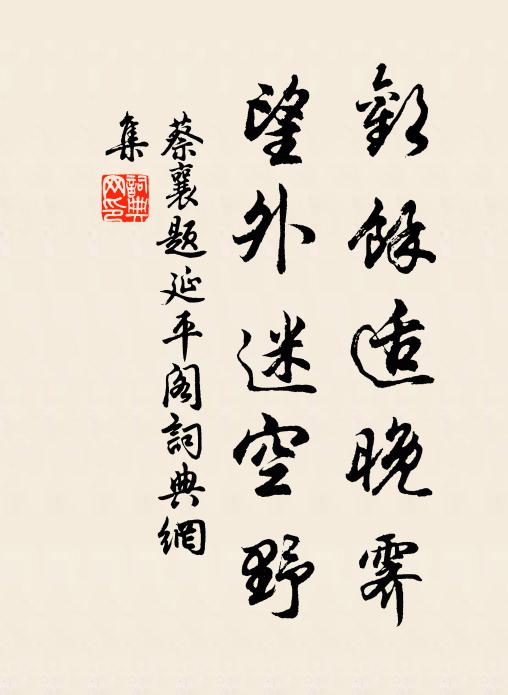 歡餘适晚霽
望外迷空野
蔡襄題延平閣詞典網
集
詞典
网印